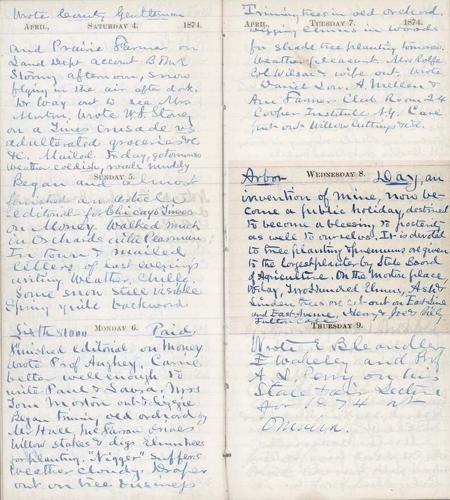 Wrote County Gentleman
APRIL, SATURDAY 4. 1874.
and Prairie Farmer on
Land Dept account B & M R
Stormy afternoon, snow
flying in the air after dark.
We way out to see Mrs
Morton. Wrote W. F. Story
on a Times crusade vs
adulterated groceries &c
&c. Mailed Friday, go tomorrow
Weather coldish, roads muddy
SUNDAY 5.
Began and almost
finished an article
editorial for Chicago Times
on Money. Walked much
in Orchards with Pearman
In town & mailed
letters of last evenings
writing. Weather chilly.
Some snow still visible
Spring quite backward
MONDAY 6.
Sixth $1000 Paid.
Finished editorial on Money
Wrote Prof Aughey, Carrie
better well enough to
write Paul & Laura, Mrs
Tom Morton out & Lizzie
Began triming old orchard by
Mr Hull, Mc Farran drives
Willow stakes & digs Elm trees
for planting. "Nigger" suffers
Weather cloudy. Draper
out on tree business
Triming trees in old orchard.
APRIL, TUESDAY 7. 1874.
Digging Elms in woods
for shade tree planting tomorrow.
Weather pleasant. Mrs Rolfe
Col Wilson & wife out. Wrote
Daniel Lor. A. Mellen &
Am Farmer Club Room 24
Cooper Institute N.Y. Care
put out Willow Cuttings &c
WEDNESDAY 8.
Arbor Day, an
invention of mine, now be-
come a public holiday, destined
to become a blessing to posterity
as well to ourselves. It is devoted
to tree planting & premiums are given
to the largest planter by State Board
of Agriculture. On the Morton place
today, Two Hundred Elms, Ash &
Linden trees are set out on East Line
and East Avenue, Henry & Joe & Billy
Fulton
THURSDAY 9.
Wrote E
E Wakeley and Prof
A. L. Perry on his
State Fair Lecture
for 1874 at
Omaha.